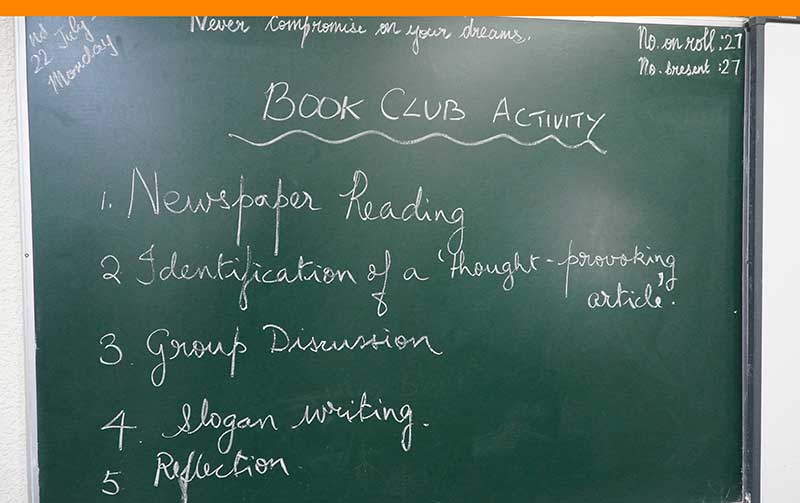 Never compromise on your dreams.
22 July
Monday
No. on roll : 27
No. present : 27
BOOK CLUB ACTIVITY
1. Newspaper Reading
2 Identification of a 'thought-provoking
article'.
3. Group Discussion
4. Slogan writing.
5. Reflection